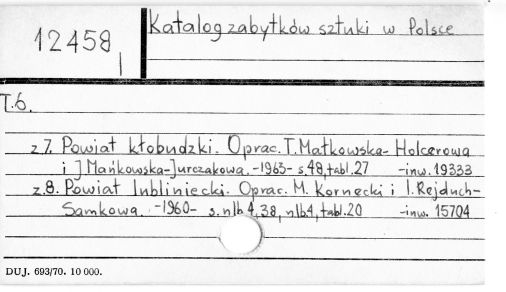 12458
Katalog zabytków sztuki w Polsce
T.6.
z.7. Powiat kłobudzki. Oprac. T. Małkowska-Holcerowa
i J Mańkowska-Jurczakowa. -1963- s.48, tabl.27 -inw. 19333
z.8. Powiat lubliniecki. Oprac. M. Kornecki i I. Rejduch-
Samkowa. -1960- s. nlb 4, 38, nlb 4, tabl.20 -inw. 15704
DUJ. 693/70. 10 000.